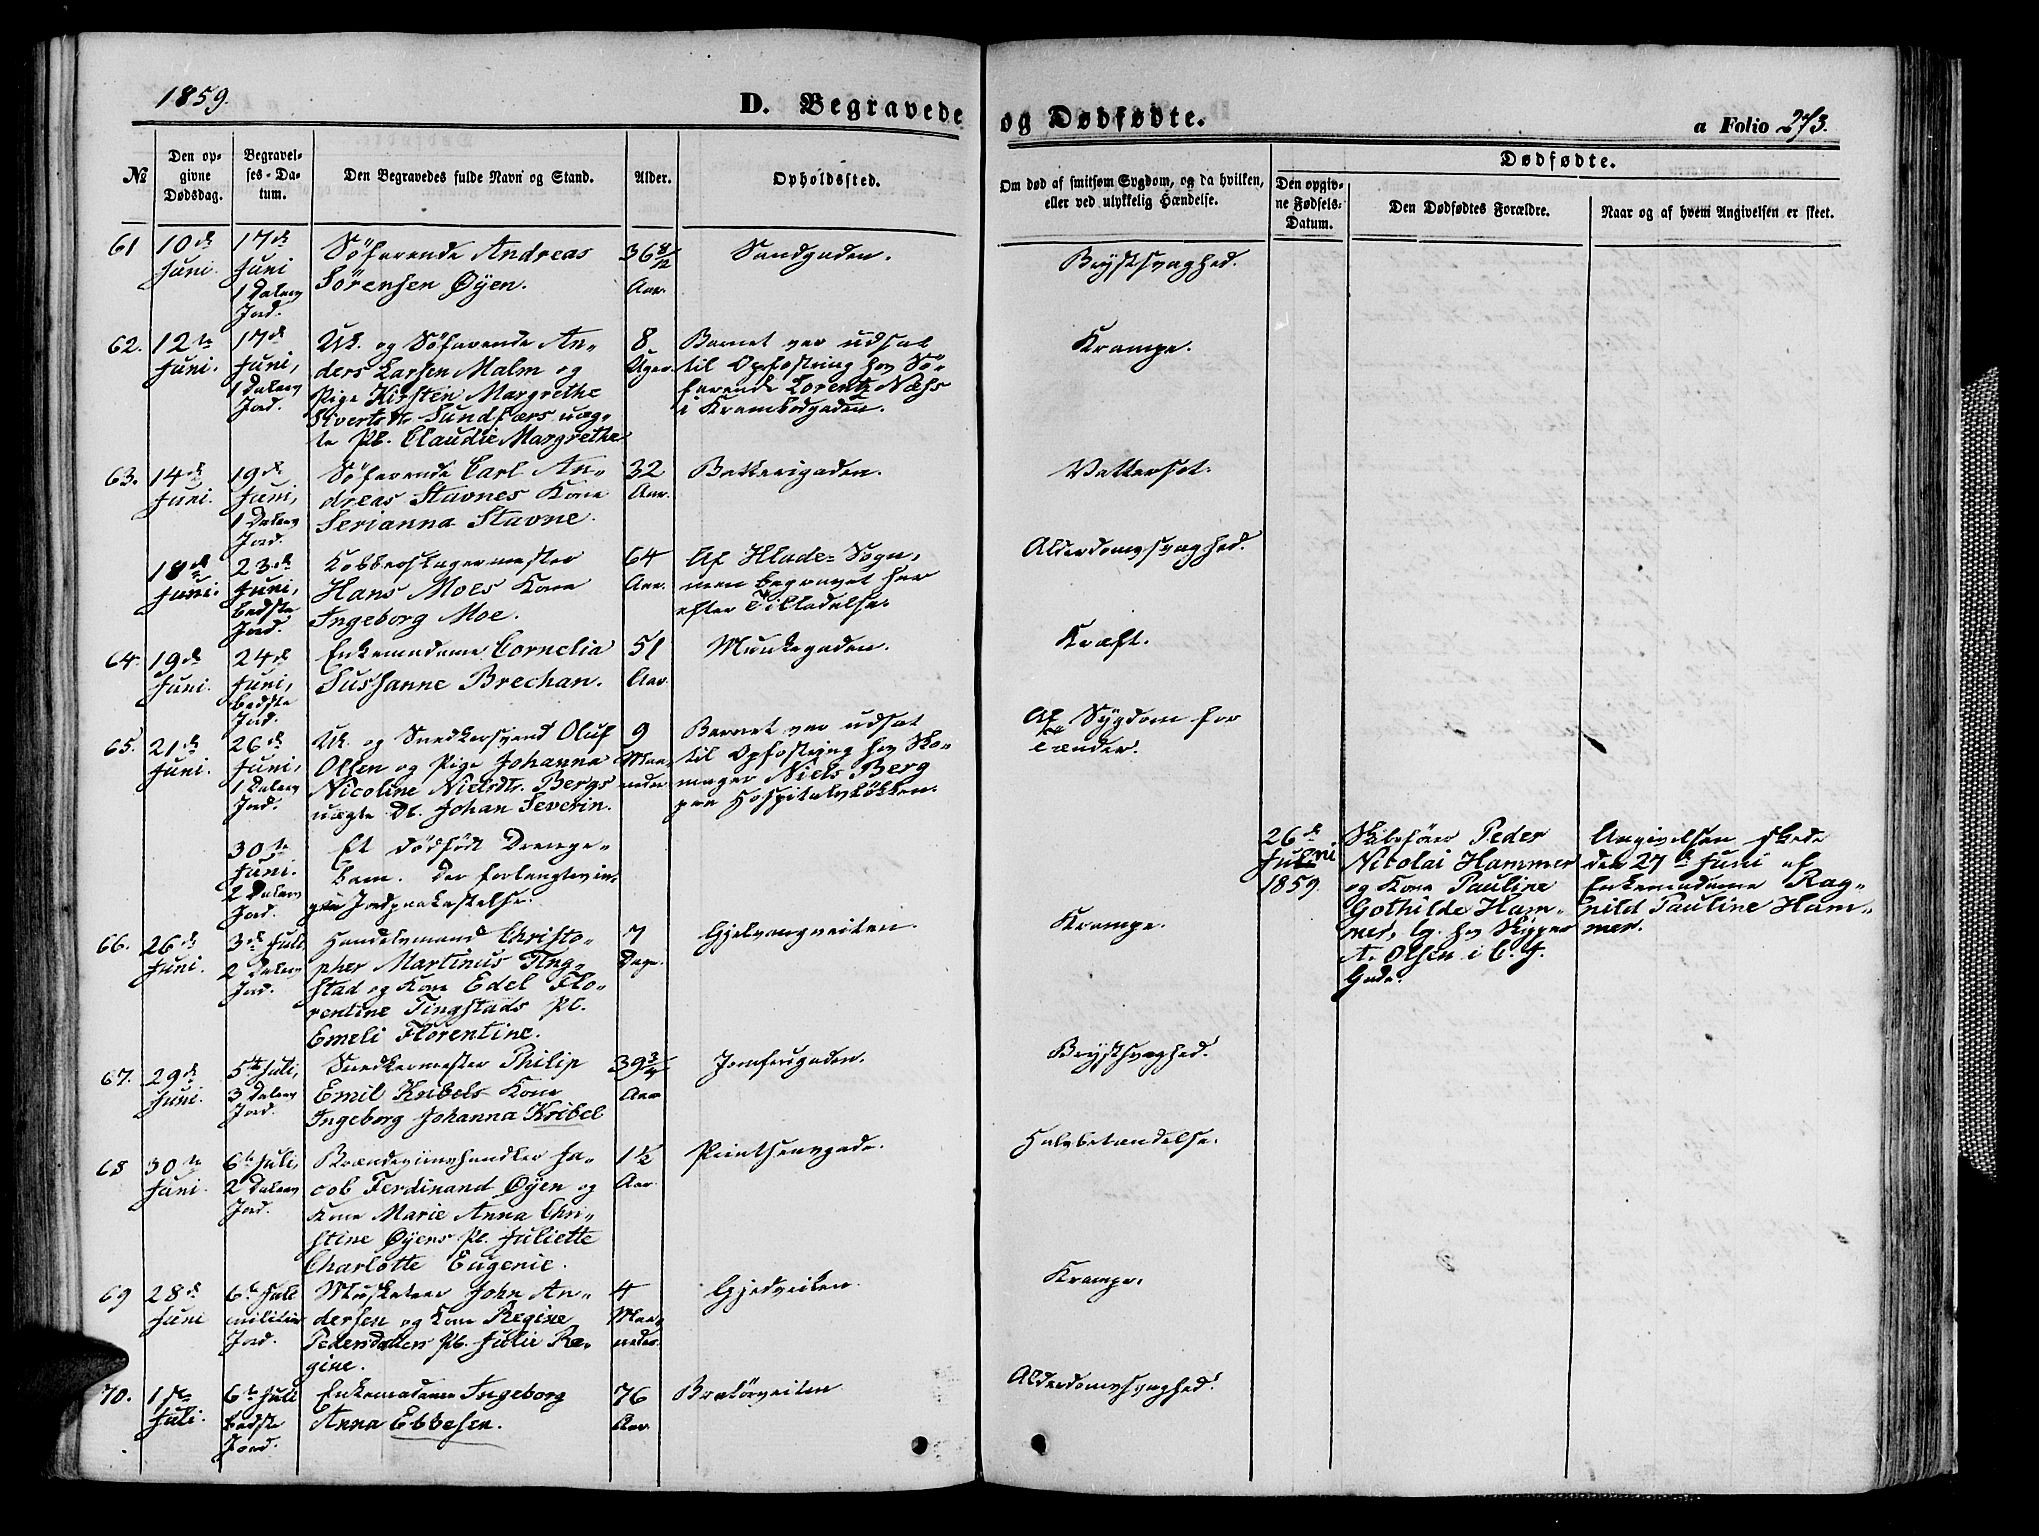 1859.
D. Begravede og Dødfødte.
a Folio 273.
№
Den opgivne Dødsdag.
Begravelses-Datum.
Den Begravedes fulde Navn og Stand.
Alder.
Opholdssted.
Om død af smitsom Sygdom, og da hvilken, eller ved ulykkelig Hændelse.
Dødfødte.
Den opgivne Fødsels-Datum.
Den Dødfødtes Forældre.
Naar og af hvem Angivelsen er skeet.
61 10de Juni. 17de Juni 1 Dalers Jord.
Søfarende Andreas
Sörensen Øyen.
36 8/12 Aar.
Sandgaden.
Brystsvaghed.
62. 12te Juni. 17de Juni, 1 Dalers Jord.
Uk. og Søfarende An-
ders Larsen Malm og
Pige Kirsten Margrethe
Sivertsdtr Sundfærs uæg-
te Pb. Claudie Margrethe
8 Uger.
Barnet var udsat
til Opfostring hos Sø-
farende Lorentz Næss
i Krambodgaden.
Krampe.
63. 14de Juni. 19de Juni, 1 Dalers Jord.
Søfarende Carl An-
dreas Stavnes Kone
Serianna Stavne.
32 Aar.
Batterigaden.
Vattersot.
18de Juni. 23de Juni, bedste Jord.
Kobberslagermester
Hans Moes Kone
Ingeborg Moe.
64 Aar.
Af Hlade-Sogn,
men begravet her
efter Tilladelse.
Alderdomssvaghed.
64. 19de Juni. 24de Juni, bedste Jord.
Enkemadame Cornelia
Sussanne Brechan.
51 Aar.
Munkegaden.
Kræft.
65. 21de Juni. 26de Juni, 1 Dalers Jord.
Uk. og Snedkersvend Oluf
Olsen og Pige Johanna
Nicoline Nielsdtr. Bergs
uægte Db. Johan Severin.
9 Maaneder
Barnet var udsat
til Opfostring hos Sko-
mager Niels Berg
paa Hospitalsløkken.
Af Sygdom for
Tænder.
30te Juni. 2 Dalers Jord.
Et dødfødt Drenge-
barn. Der forlangtes in-
gen Jordpaakastelse.
26de Juni 1859.
Skibsfører Peder
Nicolai Hammer
og Kone Pauline
Gothilde Ham-
mer, lg. hos Skipper
A. Olsen i C. J.
Gade.
Angivelsen skede
den 27de Juni af
Enkemadame Rag-
nild Pauline Ham-
mer.
66. 26de Juni. 3de Juli 2 Dalers Jord.
Handelsmand Christo-
pher Martinus Ting-
stad og Kone Edel Flo-
rentine Tingstads Pb.
Emeli Florentine.
7 Dage.
Gjelvangveiten.
Krampe.
67. 29de Juni. 5te Juli, 3 Dalers Jord.
Snedkermester Philip
Emil Kribels Kone
Ingeborg Johanna Kribel
39 3/4 Aar
Jomfrugaden.
Brystsvaghed.
68 30te Juni. 6te Juli, 2 Dalers Jord.
Brændeviinshandler Ja-
cob Ferdinand Øyen og
Kone Marie Anna Chri-
stine Øyens Pb. Juliette
Charlotte Eugenie.
1½ Aar.
Prinsensgade.
Halsbetændelse.
69 28de Juni 6te Juli militair Jord.
Musketeer John An-
dersen og Kone Regine
Pedersdatters Pb. Julie Re-
gine.
4 Maaneder.
Gjedveiten.
Krampe.
70. 1ste Juli. 6te Juli bedste Jord.
Enkemadame Ingeborg
Anna Ebbesen.
76 Aar.
Bratørveiten
Alderdomssvaghed.